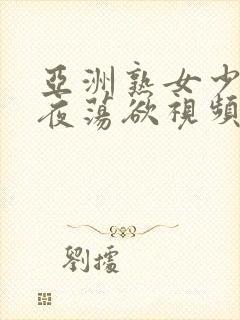 亞洲熟女少
夜蕩欲視頻
劉擂